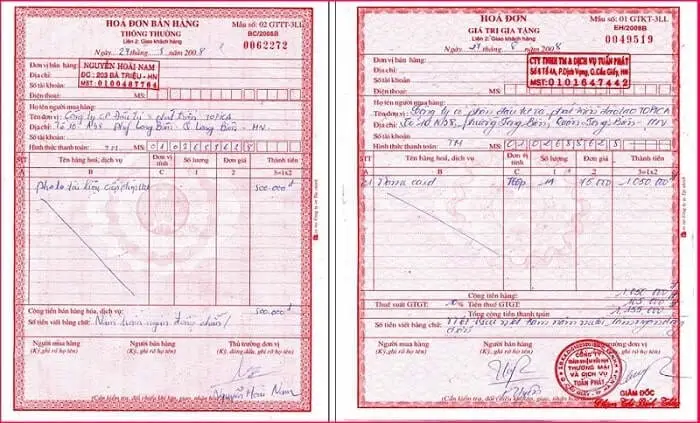 HOÁ ĐƠN BÁN HÀNG
THÔNG THƯỜNG
Liên 2: Giao khách hàng
Mẫu số: 02 GTTT-3LL
BC/2008B
0062272
Ngày 27 tháng 5 năm 2008
Đơn vị bán hàng: NGUYỄN HOÀI NAM
Địa chỉ: ĐC : 203 BÀ TRIỆU - HN
Số tài khoản
MST: 0100487764
Điện thoại: MS:
Họ tên người mua hàng:
Tên đơn vị: Công ty CP Đầu tư & phát triển TOPICA
Địa chỉ: Tổ 10 Long Biên Q Long Biên - HN
Số tài khoản
Hình thức thanh toán: TM MS:
STT Tên hàng hoá, dịch vụ Đơn vị tính Số lượng Đơn giá Thành tiền
A B C 1 2 3=1x2
Photo tài liệu 500.000đ
Cộng tiền bán hàng hóa, dịch vụ: 500.000đ
Số tiền viết bằng chữ: Năm trăm ngàn đồng chẵn/
Người mua hàng Người bán hàng Thủ trưởng đơn vị
(Ký, ghi rõ họ tên) (Ký, ghi rõ họ tên) (Ký, đóng dấu, ghi rõ họ tên)
Nguyễn Hoài Nam
(Cần kiểm tra, đối chiếu khi lập, giao, nhận hóa đơn)
HOÁ ĐƠN
GIÁ TRỊ GIA TĂNG
Liên 2: Giao khách hàng
Mẫu số: 01 GTKT-3LL
EH/2008B
0049519
Ngày 27 tháng 5 năm 2008
Đơn vị bán hàng: CTY TNHH TM & DỊCH VỤ TUẤN PHÁT
Địa chỉ: Số 6 Tổ 4A, P.Dịch Vọng, Q.Cầu Giấy, HN
Số tài khoản
MST: 0101647442
Điện thoại: MS:
Họ tên người mua hàng:
Tên đơn vị: Công ty cổ phần đầu tư và phát triển TOPICA
Địa chỉ: Tổ 10 phường Long Biên, Quận Long Biên - HN
Số tài khoản
Hình thức thanh toán: TM MS:
STT Tên hàng hoá, dịch vụ Đơn vị tính Số lượng Đơn giá Thành tiền
A B C 1 2 3=1x2
01 card hộp 14 75.000 1.050.000đ
Cộng tiền hàng: 1.050.000đ
Thuế suất GTGT: 10% Tiền thuế GTGT: 105.000đ
Tổng cộng tiền thanh toán 1.155.000đ
Số tiền viết bằng chữ: Một triệu một trăm năm mươi lăm ngàn đồng
Người mua hàng Người bán hàng
(Ký, ghi rõ họ tên) (Ký, ghi rõ họ tên)
CÔNG TY
THƯƠNG MẠI
VÀ DỊCH VỤ
TUẤN PHÁT
GIÁM ĐỐC